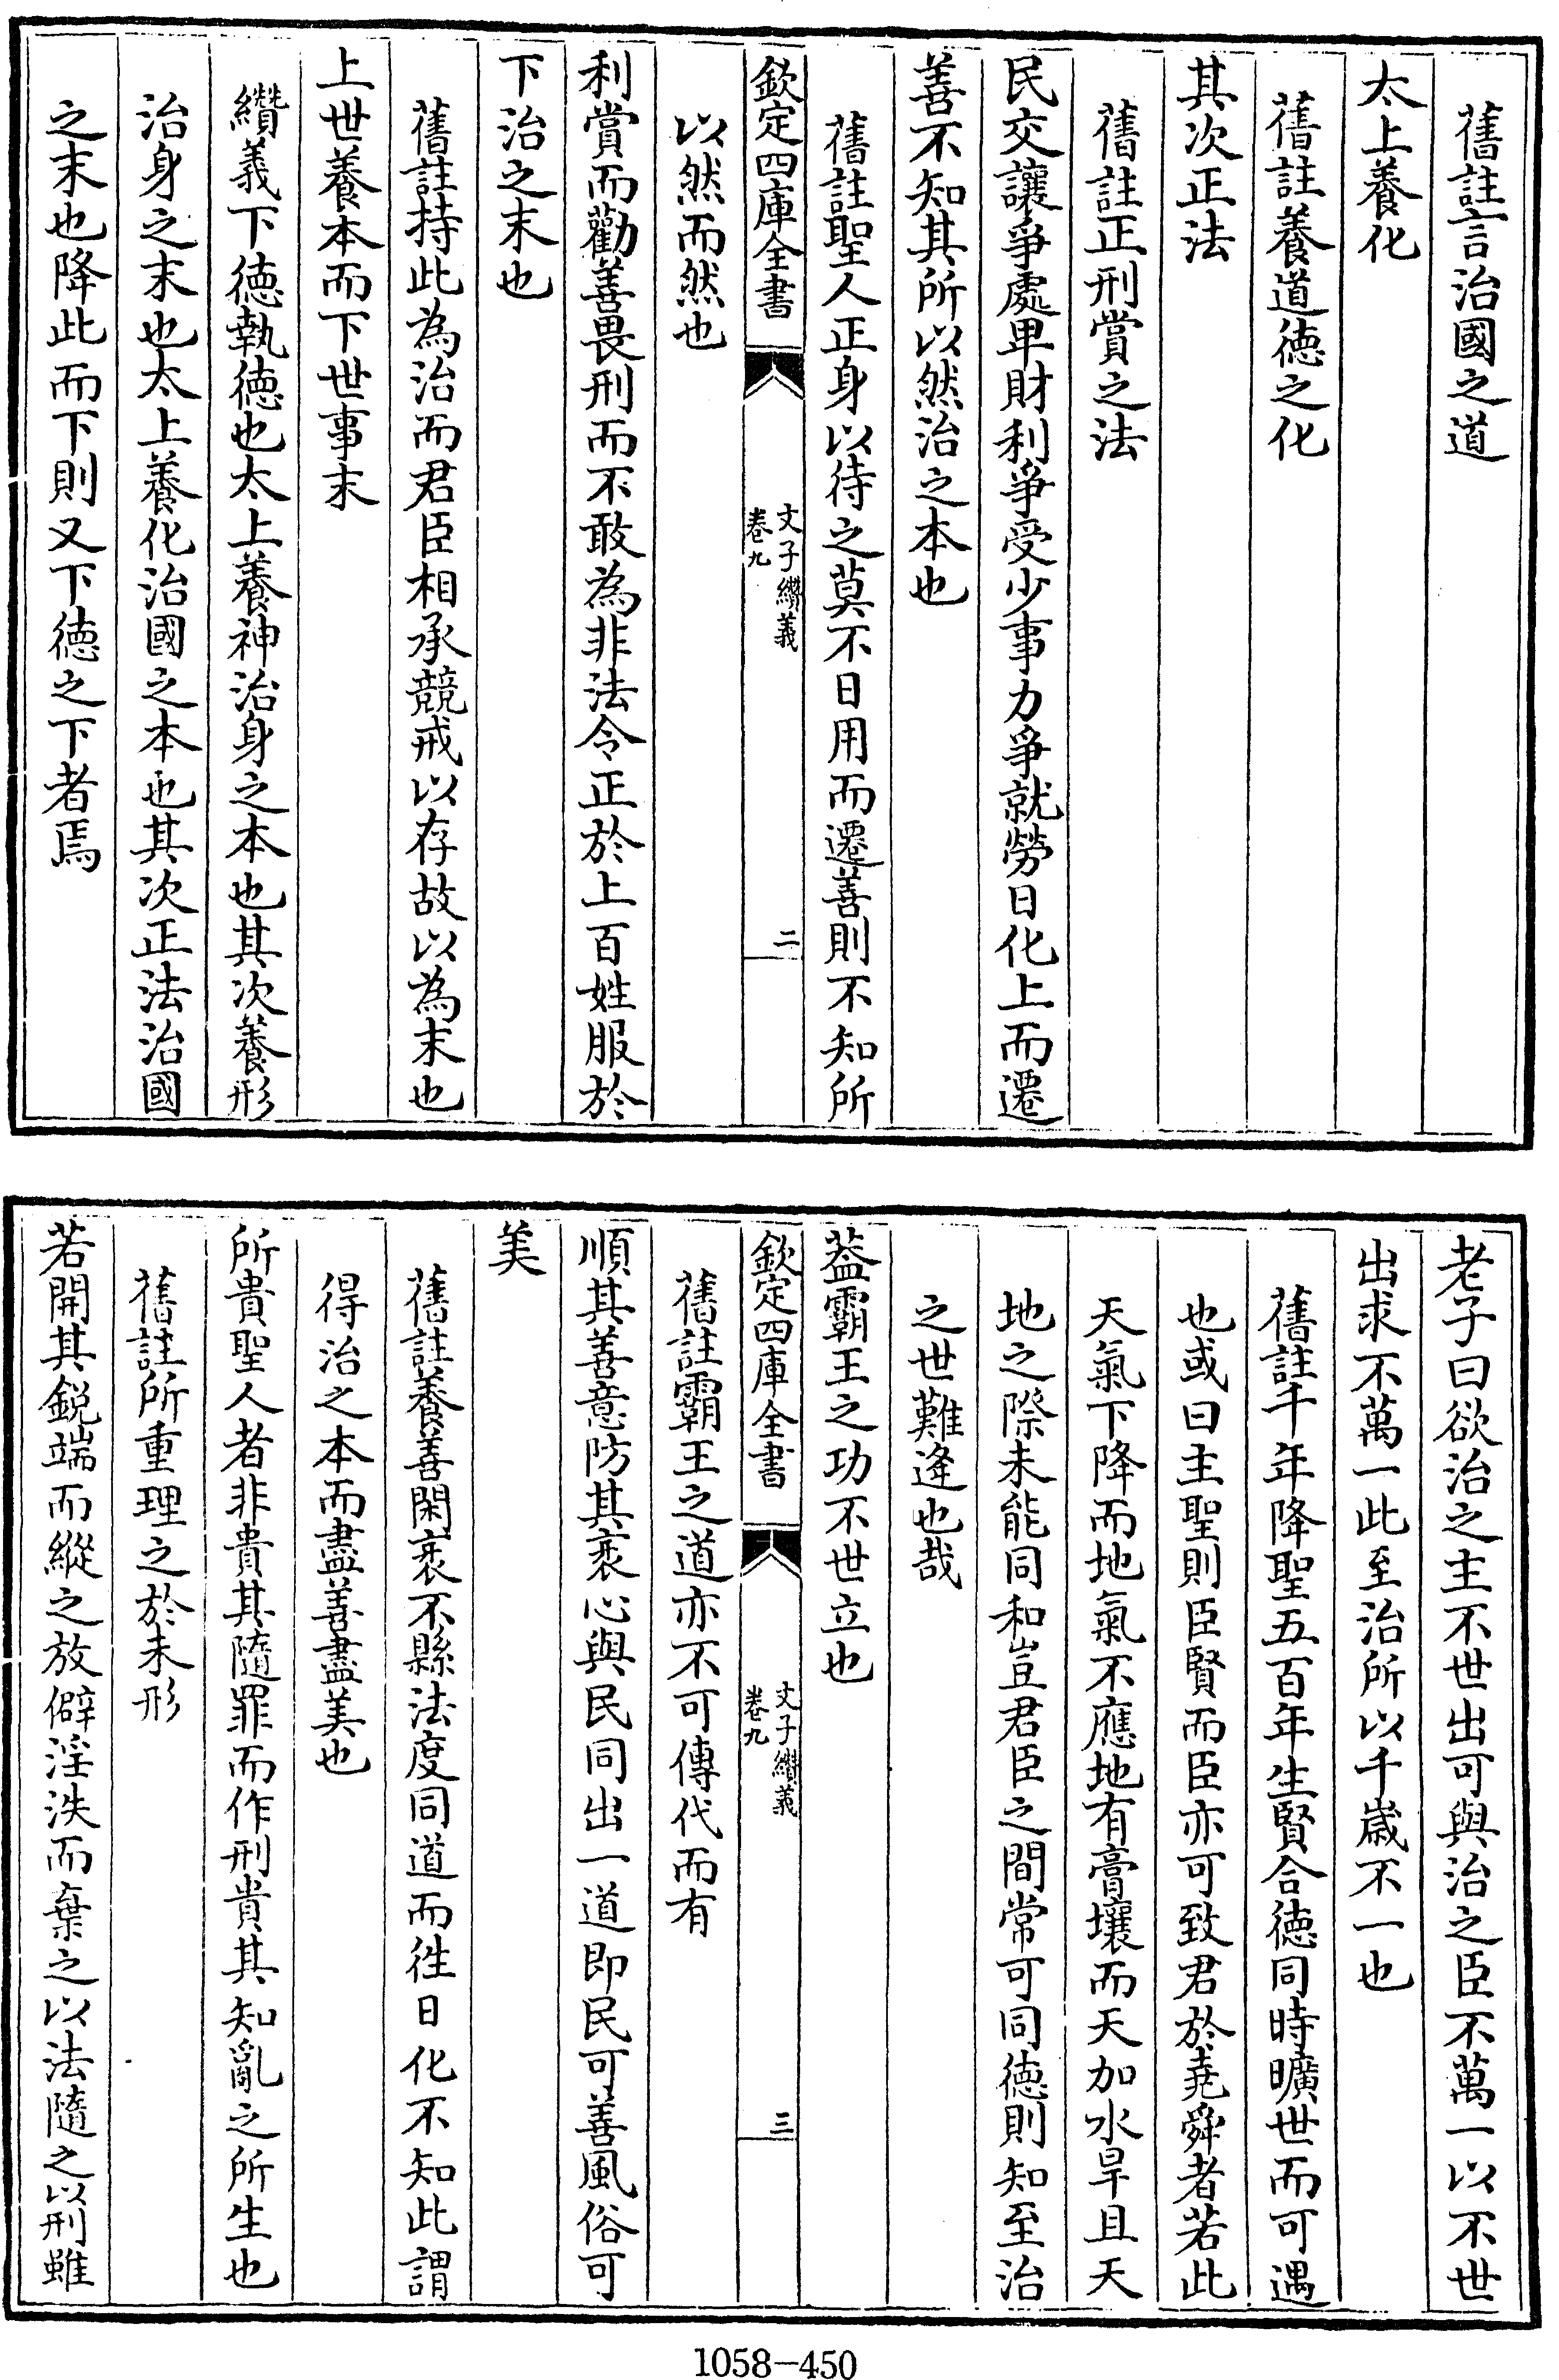 舊註言治國之道
太上養化
舊註養道徳之化
其次正法
舊註正刑賞之法
民交讓爭處卑財利爭受少事力爭就勞日化上而遷
善不知其所以然治之本也
舊註聖人正身以待之莫不日用而遷善則不知所
欽定四庫全書
文子纉義
卷九
二
以然而然也
利賞而勸善畏刑而不敢為非法令正於上百姓服於
下治之末也
舊註持此為治而君臣相承競戒以存故以為末也
上世養本而下世事末
纉義下徳執徳也太上養神治身之本也其次養形
治身之末也太上養化治國之本也其次正法治國
之末也降此而下則又下徳之下者焉
老子曰欲治之主不世出可與治之臣不萬一以不世
出求不萬一此至治所以千嵗不一也
舊註千年降聖五百年生賢合徳同時曠世而可遇
也或曰主聖則臣賢而臣亦可致君於堯舜者若此
天氣下降而地氣不應地有膏壤而天加水旱且天
地之際未能同和豈君臣之間常可同徳則知至治
之世難逢也哉
葢霸王之功不世立也
欽定四庫全書
文子纉義
卷九
三
舊註霸王之道亦不可傳代而有
順其善意防其衺心與民同出一道即民可善風俗可
美
舊註養善閑衺不縣法度同道而徃日化不知此謂
得治之本而盡善盡美也
所貴聖人者非貴其隨罪而作刑貴其知亂之所生也
舊註所重理之於未形
若開其鋭端而縱之放僻淫泆而棄之以法隨之以刑雖
1058-450